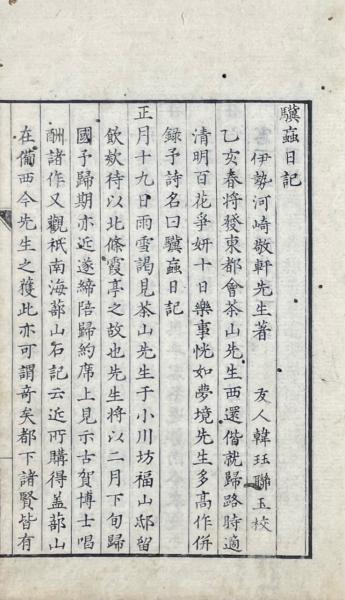 驥蝱日記
伊勢河崎敬軒先生著　友人韓珏聯玉校
乙亥春将發東都會茶山先生西還偕就歸路時適
清明百花爭妍十日樂事恍如夢境先生多高作併
録予詩名曰驥蝱日記
正月十九日雨雪謁見茶山先生于小川坊福山邸留
飲欵待以北條霞亭之故也先生將以二月下旬歸
國予歸期亦近遂締陪歸約席上見示古賀博士唱
酬諸作又觀祇南海蔀山石記云近所購得盖蔀山
在備西今先生之獲此亦可謂奇矣都下諸賢皆有